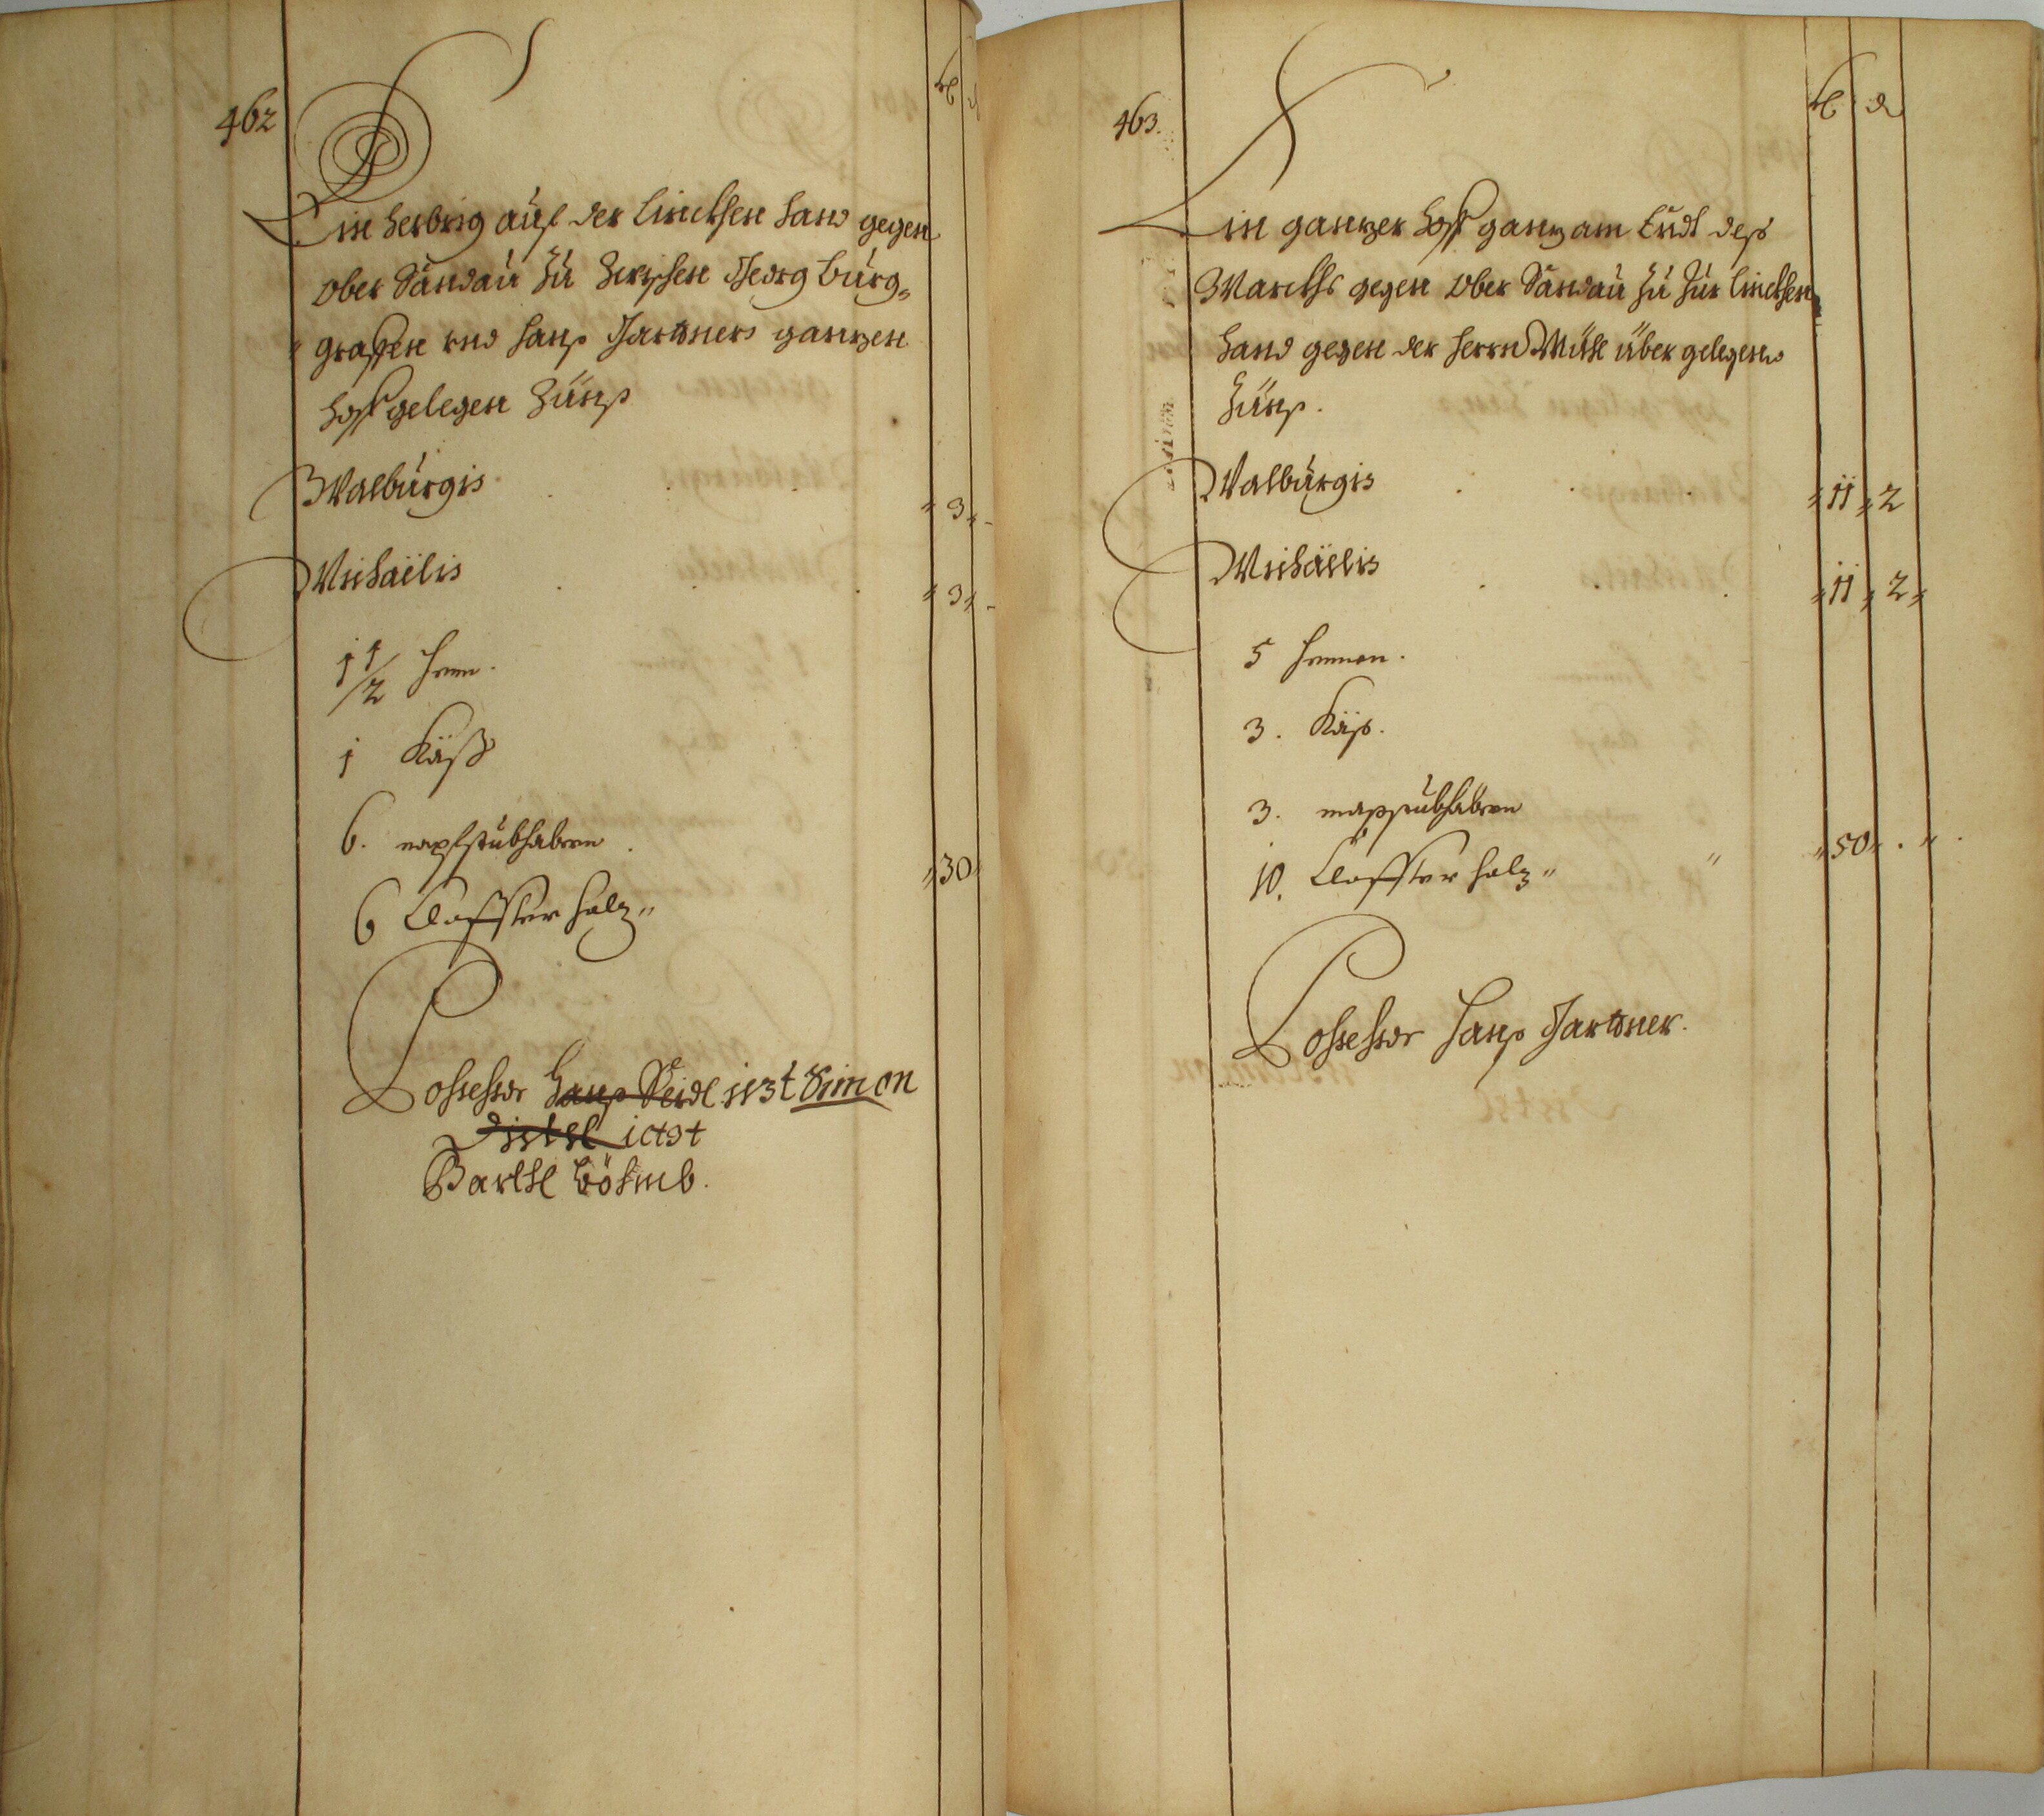 462
Ein herbrig auf der linckhen hand gegen
Ober Sandau zu Zwischen Georg Burg-
graffen vnd Hanß Gartners ganzen
Hoff gelegen Zünß
Walburgis " 3 " -
Michaëlis " 3 " -
1 1/2 henn.
1 Käß
6. napfstubhabern
" 30 "
6 Claffter holz "
Possessor Hanß Seidl iezt Simon
Distel ietzt
Barthl Böhmb.
463.
Ein ganzer Hoff ganz am Endt deß
Marckhs gegen Ober Sandau zu zur linckhen
hand gegen der Herrn Mühl über gelegen
Zünß.
Walburgis " 11 " 2
Michaëlis " 11 " 2 "
5 hennen.
3. Käß.
3. habern
10. Claffter holz " " " 50 " . "
Possessor Hanß Gartner.